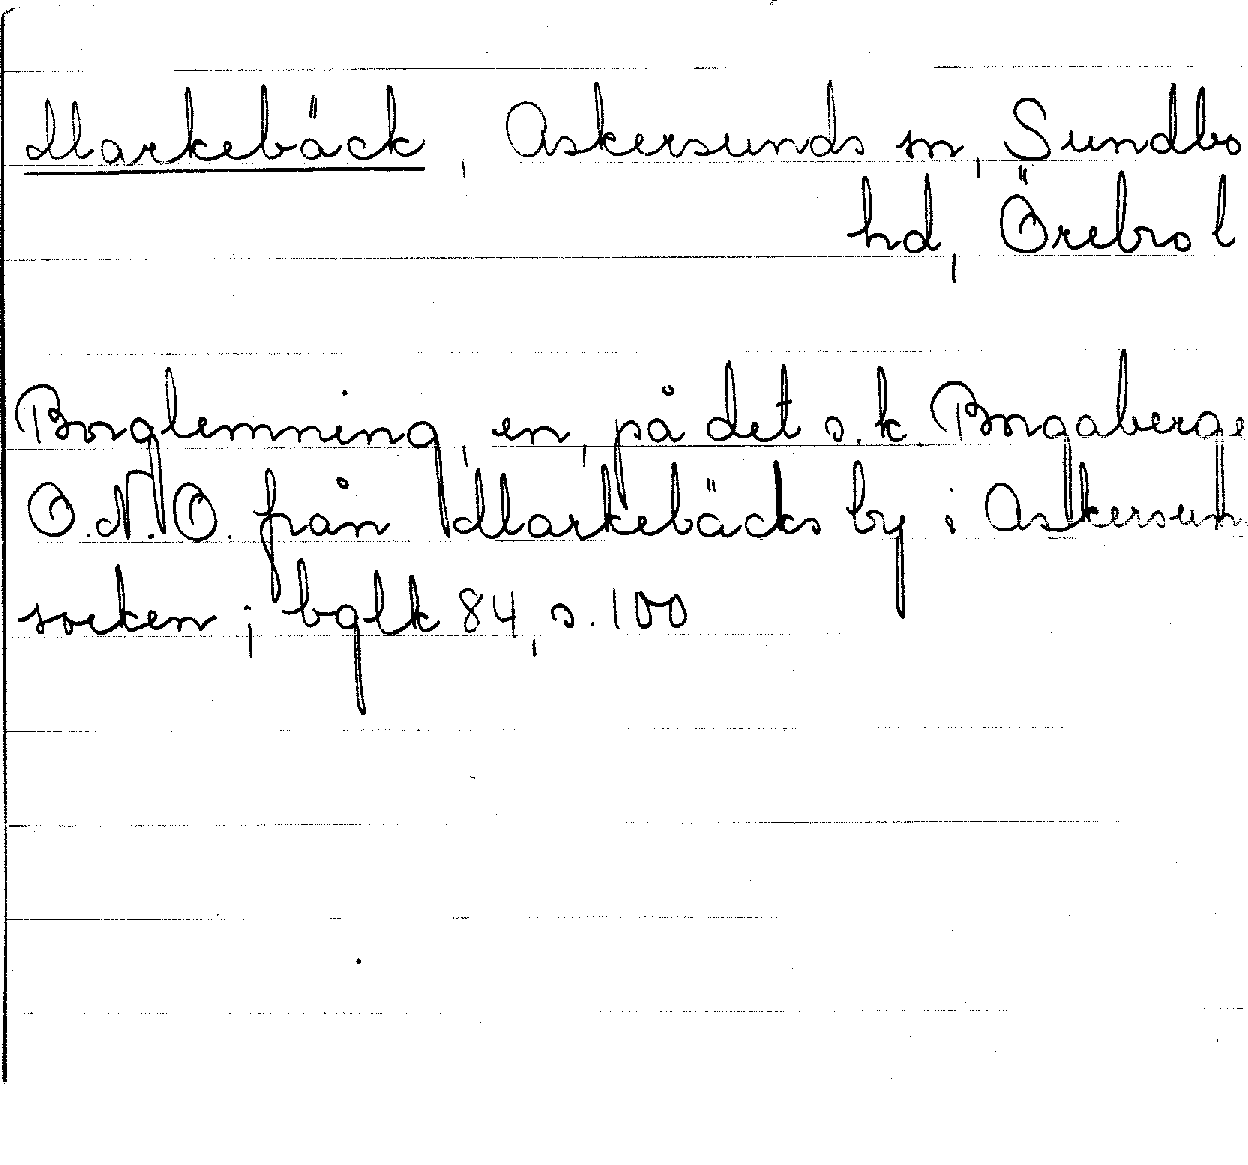 Markebäck, Askersunds sn, Sundbo
hd, Örebro l
Borglemning, en, på det s.k. Borgaberge
O.N.O. från Markebäcks by i Askersun
socken; bglk 84, s. 100